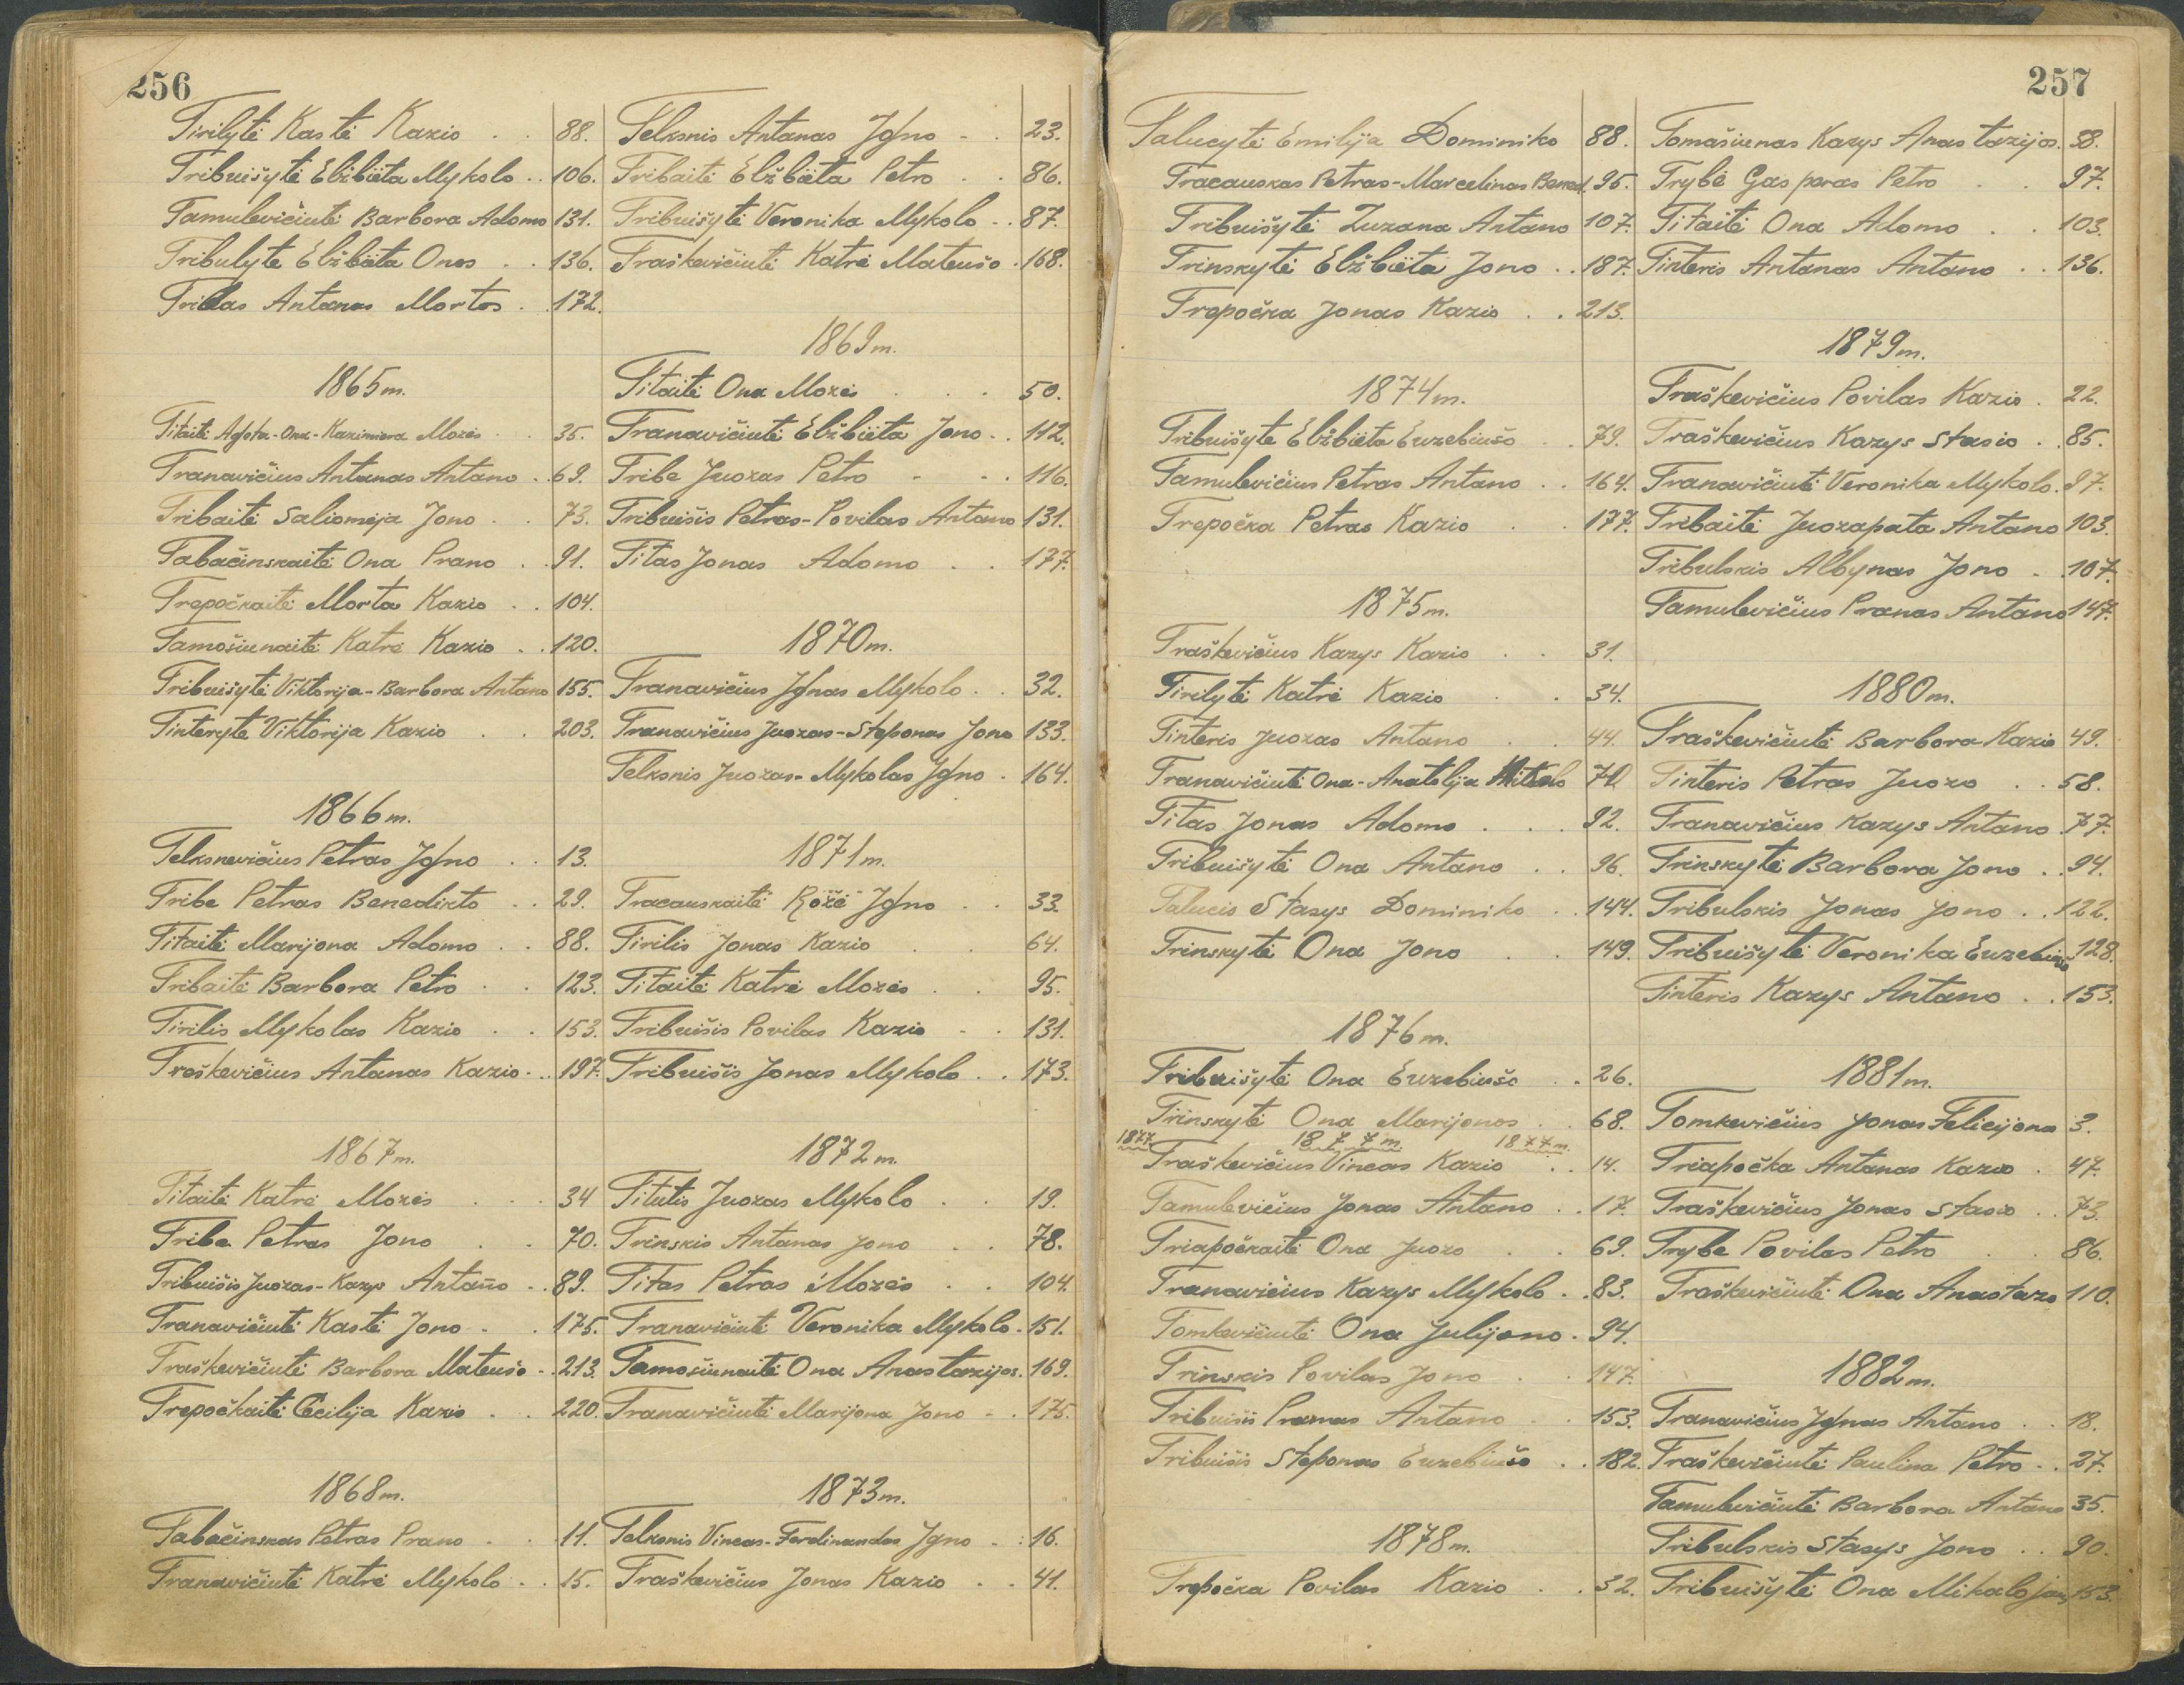 256
Tirilytė Kastė Kazio . . 88.
Tribuišytė Elžbieta Mykolo . . 106.
Tamulevičiutė Barbora Adomo 131.
Tribulytė Elžbieta Onos . . 136.
Antanas Mortos . . 172.
1865 m.
Titaitė Agota-Ona-Kazimiera Mozės . . 35.
Tranavičius Antanas Antano . . 69.
Tribaitė Saliomėja Jono . . 73.
Tabačinskaitė Ona Prano . . 91.
Trepočkaitė Morta Kazio . . 104.
Tamošiunaitė Katrė Kazio . . 120.
Tribuišytė Viktorija-Barbora Antano 155.
Tinterytė Viktorija Kazio . . 203.
1866 m.
Telksnevičius Petras Igno . . 13.
Tribe Petras Benedikto . . 29.
Titaitė Marijona Adomo . . 88.
Tribaitė Barbora Petro . . 123.
Tirilis Mykolas Kazio . . 153.
Traškevičius Antanas Kazio . . 197.
1867 m.
Titaitė Katrė Mozės . . 34
Tribe Petras Jono . . 70.
Tribuišis Juozas-Kazys Antano . . 89.
Tranavičiutė Kastė Jono . . 175.
Traškevičiutė Barbora Mateušo . . 213.
Trepočkaitė Cecilija Kazio . . 220.
1868 m.
Tabačinskas Petras Prano . . 11.
Tranavičiutė Katrė Mykolo . . 15.
Telksnis Antanas Igno . . 23.
Tribaitė Elžbieta Petro . . 86.
Tribuišytė Veronika Mykolo . . 87.
Traškevičiutė Katrė Mateušo . 168.
1869 m.
Titaitė Ona Mozės . . . 50.
Tranavičiutė Elžbieta Jono . . 112.
Tribe Juozas Petro . . . 116.
Tribuišis Petras-Povilas Antano 131.
Titas Jonas Adomo . . 177.
1870 m.
Tranavičius Ignas Mykolo . . 32.
Tranavičius Juozas-Steponas Jono 133.
Telksnis Juozas-Mykolas Igno . 164.
1871 m.
Tracauskaitė Rožė Igno . . 33.
Tirilis Jonas Kazio . . 64.
Titaitė Katrė Mozės . . 95.
Tribuišis Povilas Kazio . . 131.
Tribuišis Jonas Mykolo . . 173.
1872 m.
Titutis Juozas Mykolo . . 19.
Trinskis Antanas Jono . . 78.
Titas Petras Mozės . . 104.
Tranavičiutė Veronika Mykolo . 151.
Tamošiunaitė Ona Anastazijos . 169.
Tranavičiutė Marijona Jono . . 175.
1873 m.
Telksnis Vincas-Ferdinandas Igno . . 16.
Traškevičius Jonas Kazio . . 41.
257
Talucytė Emilija Dominiko 88.
Tracauskas Petras-Marcelinas Bened. 95.
Tribuišytė Zuzana Antano 107.
Trinskytė Elžbieta Jono . . 187.
Trepočka Jonas Kazio . . 213.
1874 m.
Tribuišytė Elžbieta Euzebiušo . . 79.
Tamulevičius Petras Antano . . 164.
Trepočka Petras Kazio . . 177.
1875 m.
Traškevičius Kazys Kazio . . 31.
Tirilytė Katrė Kazio . . 34.
Tinteris Juozas Antano . . 44.
Tranavičiutė Ona-Anatolija
Titas Jonas Adomo . . . 92.
Tribuišytė Ona Antano . . 96.
Talucis Stasys Dominiko . . 144.
Trinskytė Ona Jono . . 149.
1876 m.
Tribuišytė Ona Euzebiušo . . 26.
Trinskytė Ona Marijonos . . 68.
1877. 1877 m. 1877 m.
Traškevičius Vincas Kazio . . 14.
Tamulevičius Jonas Antano . . 17.
Triapočkaitė Ona Juozo . . 69.
Tranavičius Kazys Mykolo . . 83.
Tomkevičiutė Ona Julijono . 94.
Trinskis Povilas Jono . . 147.
Tribuišis Pranas Antano . . 153.
Tribuišis Steponas Euzebiušo . . 182.
1878 m.
Trepočka Povilas Kazio . . 32.
Tomašiunas Kazys Anastazijos. 58.
Trybė Gasparas Petro . . 97.
Titaitė Ona Adomo . . 103.
Tinteris Antanas Antano . . 136.
1879 m.
Traškevičius Povilas Kazio . 22.
Traškevičius Kazys Stasio . . 85.
Tranavičiutė Veronika Mykolo . 97.
Tribaitė Juozapata Antano 103.
Tribulskis Albynas Jono . . 107.
Tamulevičius Pranas Antano 147.
1880 m.
Traškevičiutė Barbora Kazio 49.
Tinteris Petras Juozo . . 58.
Tranavičius Kazys Antano . 77.
Trinskytė Barbora Jono . . 94.
Tribulskis Jonas Jono . . 122.
Tribuišytė Veronika Euzebiušo 128.
Tinteris Kazys Antano . . 153.
1881 m.
Tomkevičius Jonas Felicijono 3.
Triapočka Antanas Kazio . 47.
Traškevičius Jonas Stasio . . 73.
Trybe Povilas Petro . . 86.
Traškevičiutė Ona Anastazo 110.
1882 m.
Tranavičius Ignas Antano . . 18.
Traškevičiutė Paulina Petro . . 27.
Tamulevičiutė Barbora Antano 35.
Tribulskis Stasys Jono . . 90.
Tribuišytė Ona Mikalojaus 153.